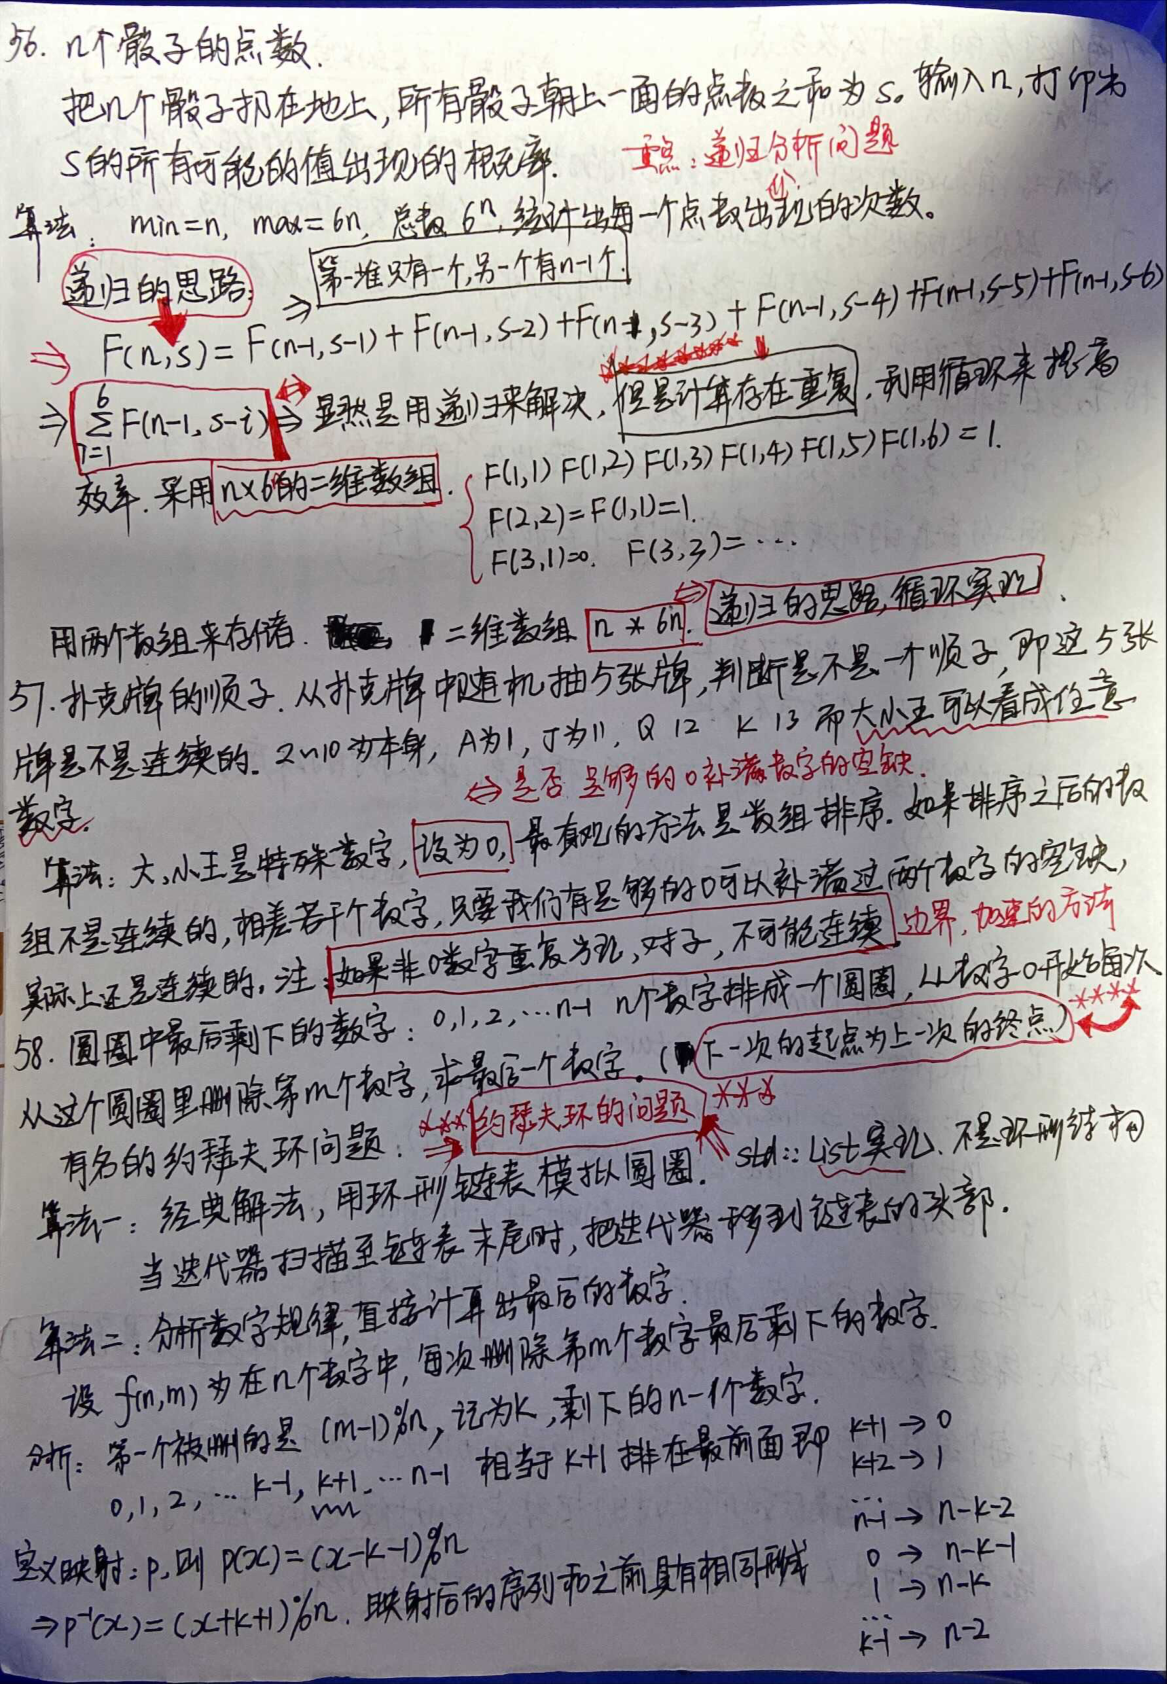 56. n个骰子的点数.
把n个骰子扔在地上,所有骰子朝上一面的点数之和为S。输入n,打印出
S的所有可能的值出现的概率.
重点:递归分析问题
算法: min=n, max=6n, 总数6ⁿ, 统计出每一个点数出现的次数。
递归的思路:
⇒ 第一堆只有一个,另一个有n-1个.
⇒ F(n,s)=F(n-1,s-1)+F(n-1,s-2)+F(n-1,s-3)+F(n-1,s-4)+F(n-1,s-5)+F(n-1,s-6)
⇒ 6∑i=1 F(n-1,s-i) ⇒ 显然是用递归来解决,但是计算存在重复,利用循环来提高
效率.采用n×6的二维数组.
F(1,1) F(1,2) F(1,3) F(1,4) F(1,5) F(1,6)=1.
F(2,2)=F(1,1)=1.
F(3,1)=0. F(3,3)=...
用两个数组来存储. 二维数组 n*6n. ⇔ 递归的思路,循环实现.
57. 扑克牌的顺子.从扑克牌中随机抽5张牌,判断是不是一个顺子,即这5张
牌是不是连续的. 2~10为本身, A为1, J为11, Q 12 K 13 而大小王可以看成任意
数字.
⇔ 是否足够的0补满数字的空缺.
算法:大,小王是特殊数字,设为0,最直观的方法是数组排序.如果排序之后的数
组不是连续的,相差若干个数字,只要我们有足够的0可以补满这两个数字的空缺,
实际上还是连续的。注:如果非0数字重复出现,对子,不可能连续.边界,加速的方法
58. 圆圈中最后剩下的数字: 0,1,2,...n-1 n个数字排成一个圆圈,从数字0开始每次
从这个圆圈里删除第m个数字,求最后一个数字。(下一次的起点为上一次的终点)
有名的约瑟夫环问题: ⇒ 约瑟夫环的问题
算法一: 经典解法,用环形链表模拟圆圈. std::List实现.不是环形结构
当迭代器扫描至链表末尾时,把迭代器移到链表的头部.
算法二:分析数字规律,直接计算出最后的数字.
设 f(n,m) 为在n个数字中,每次删除第m个数字最后剩下的数字.
分析: 第一个被删的是 (m-1)%n, 记为k,剩下的n-1个数字.
0,1,2,...k-1,k+1...n-1 相当于k+1排在最前面即
k+1→0
k+2→1
...
n-1→n-k-2
0→n-k-1
1→n-k
...
k-1→n-2
定义映射:p,则 p(x)=(x-k-1)%n
⇒p⁻¹(x)=(x+k+1)%n. 映射后的序列和之前具有相同形式